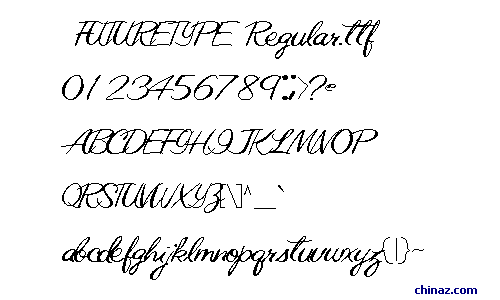 FUTURETYPE Regular.ttf
0123456789:;>?@
ABCDEFGHIJKLMNOP
QRSTUVWXYZ[\]^_`
abcdefghijklmnopqrstuvwxyz{|}~
chinaz.com